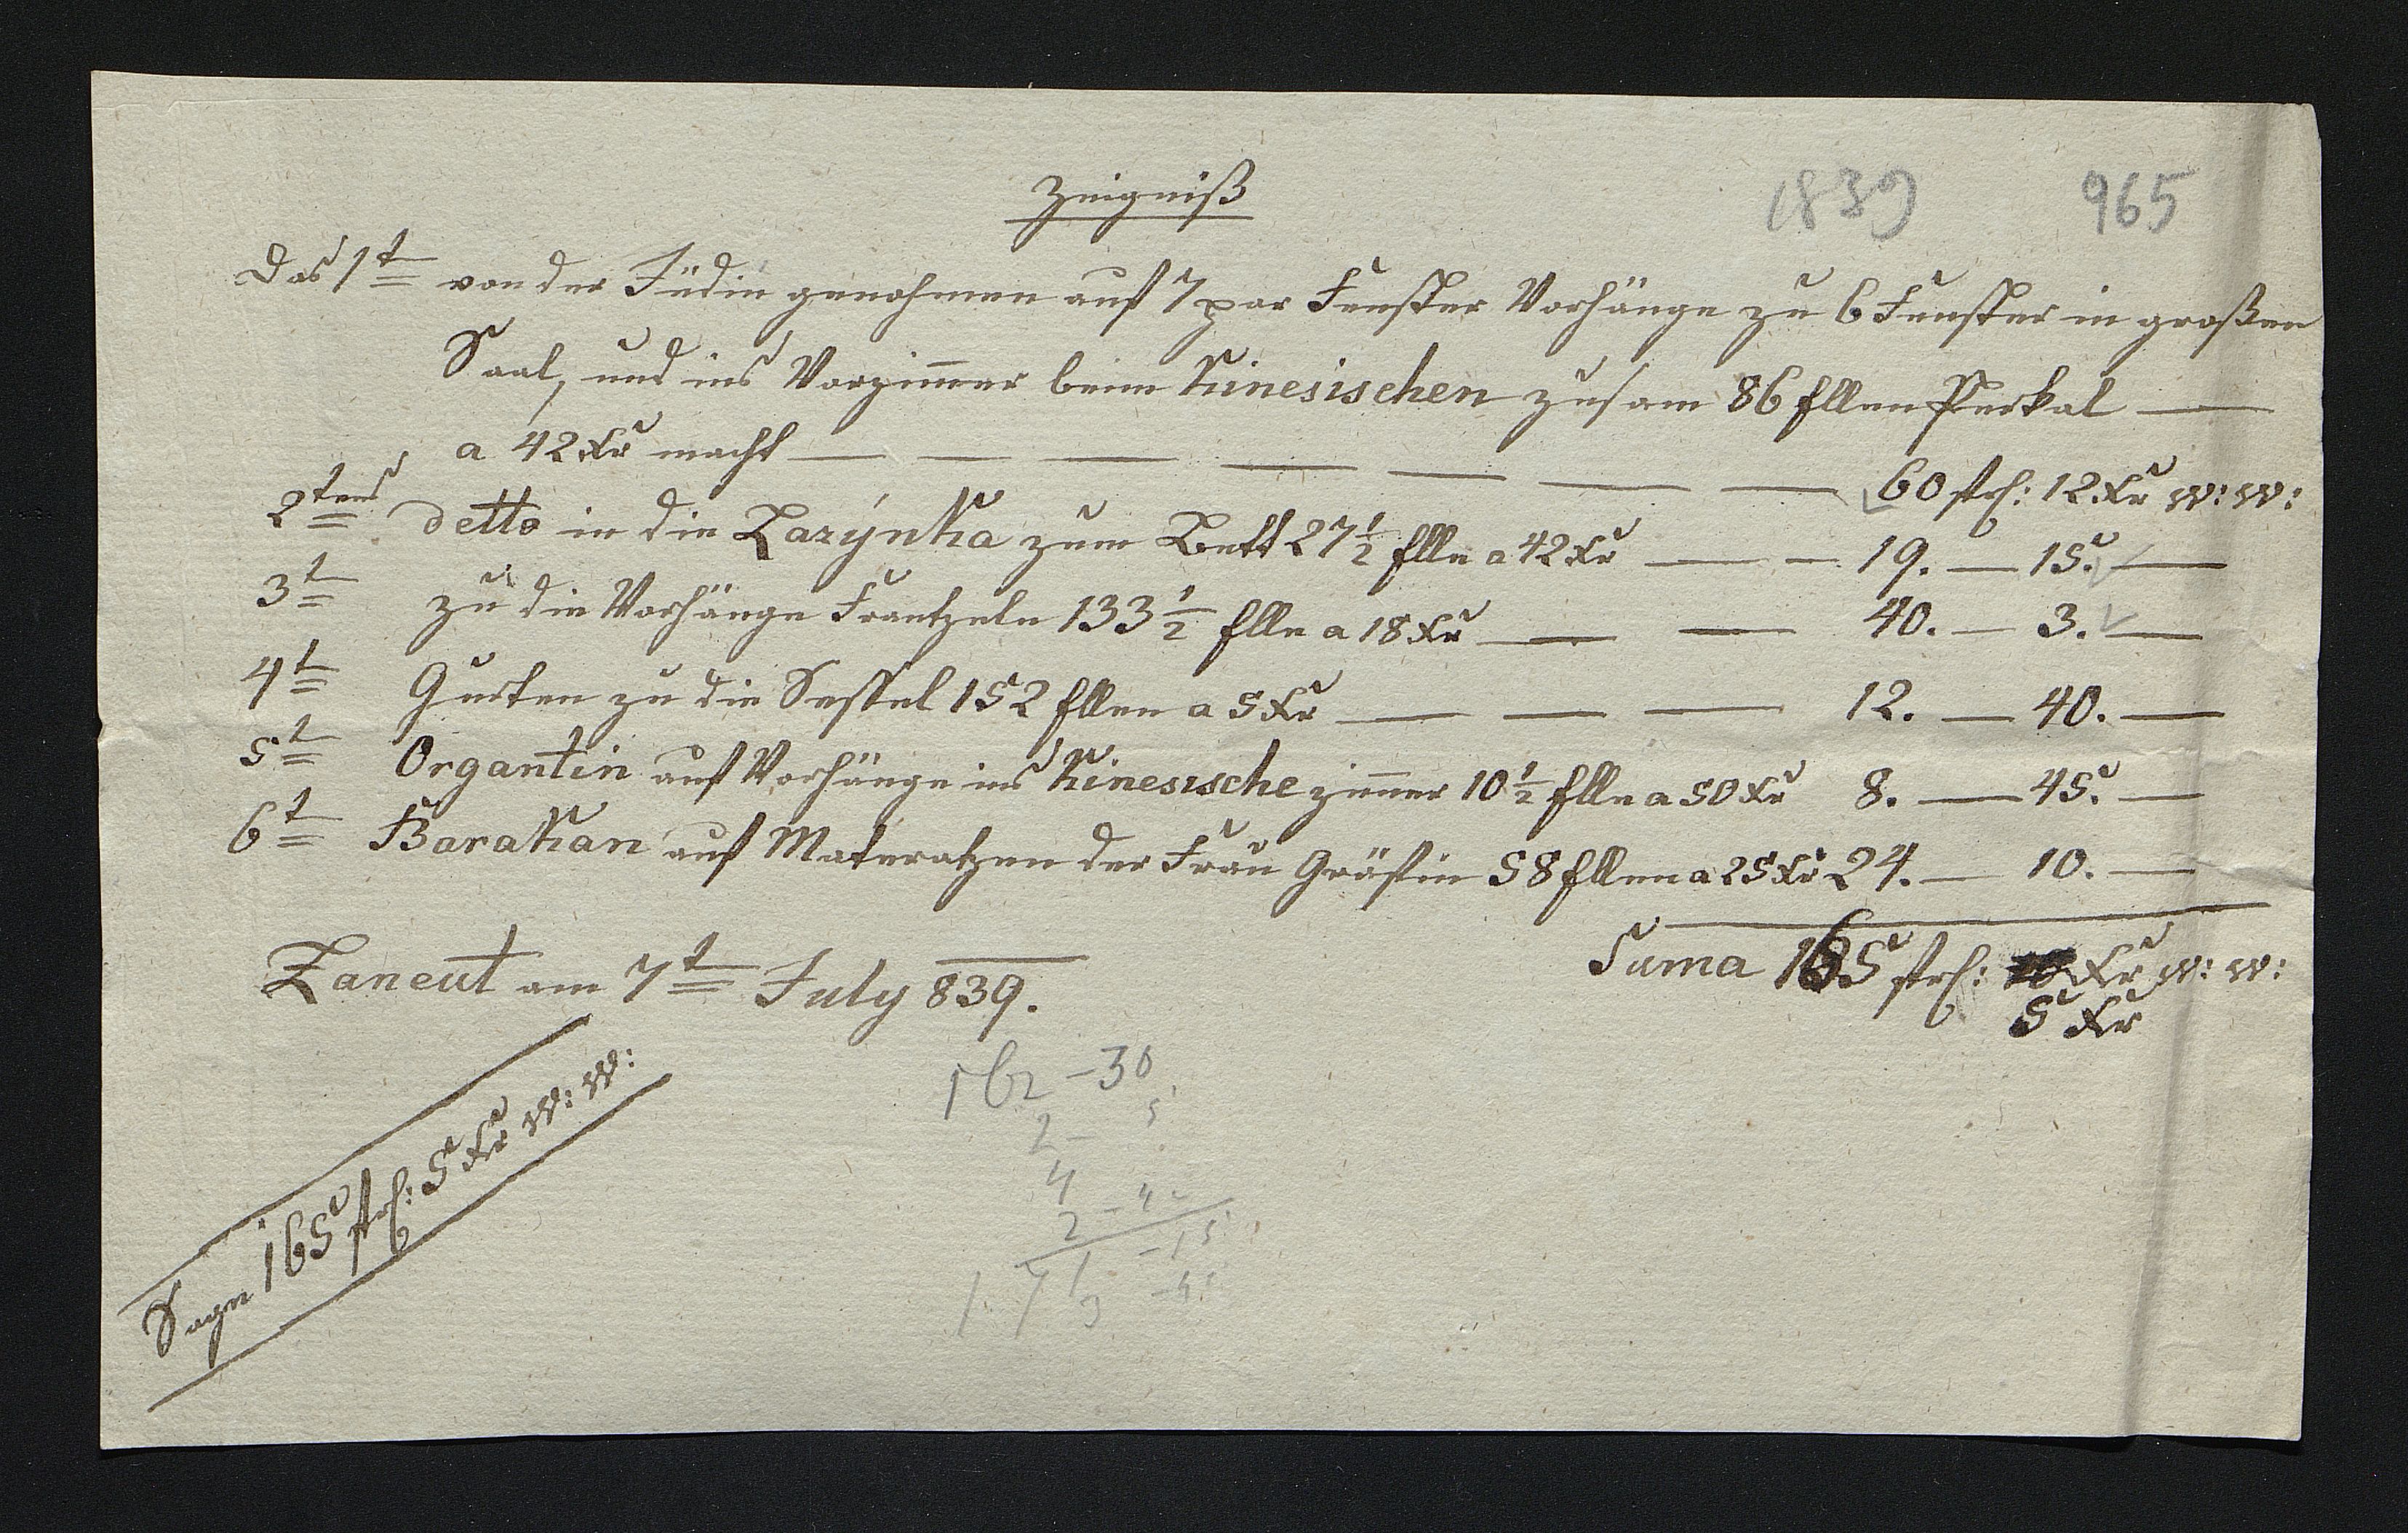 Zeigniß
1839
965
Das 1t von der Jüdin genohmen auf 7 par Fenster Vorhänge zu 6 Fenster in großen
Saal, und ins Vorzimmer beim Kinesischen zusam 86 Ellen Perkal —
a 42 Xr macht — — — — — — — 60 fl: 12 Xr W: W:
2tens detto in die Lazýnka zum Bett 27 1/2 Elln a 42 Xr — — 19. — 15. —
3t zu die Vorhänge Frantzeln 133 1/2 Elln a 18 Xr — — 40. — 3. —
4t Gurten zu die Sessel 152 Ellen a 5 Xr — — — 12. — 40. —
5t Organtin auf Vorhänge ins Kinesische zimmer 10 1/2 Elln a 50 Xr 8. — 45. —
6t Barakan auf Materatzen der Frau Gräfin 58 Ellen a 25 Xr 24. — 10. —
Suma 165 fl: Xr W: W:
5 Xr
Lancut am 7t July 839.
Sage 165 fl: 5 Xr W: W:
162 - 30
2 - 5
4
2 - 40
1 7 1 - 15
3 - 45